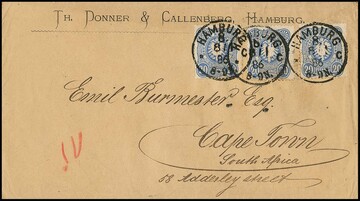 Th. Donner & Callenberg, Hamburg.
HAMBURG
8
8 1
86
8-9N.
HAMBURG
8
8 1
86
8-9N.
HAMBURG
8
8 1
86
8-9N.
Emil Burmester Esq.
Cape Town
South Africa
58 Adderley street